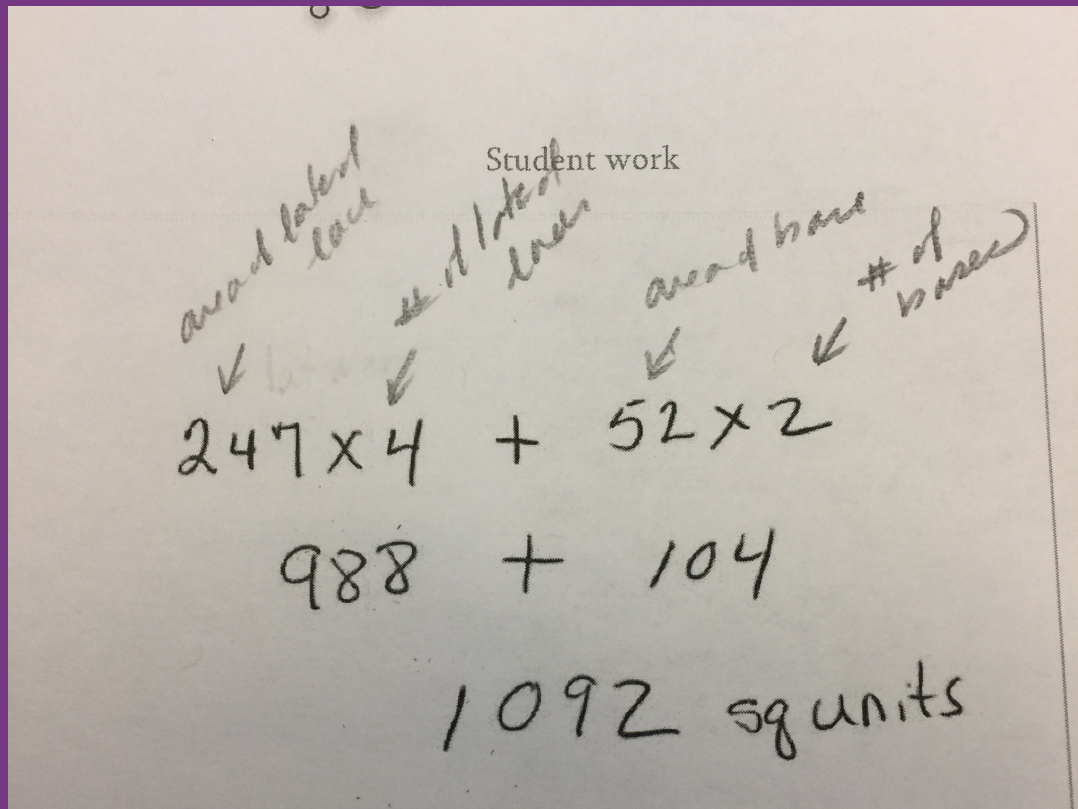 Student work
area of lateral face
# of lateral faces
area of base
# of bases
247 × 4 + 52 × 2
988 + 104
1092 sq units